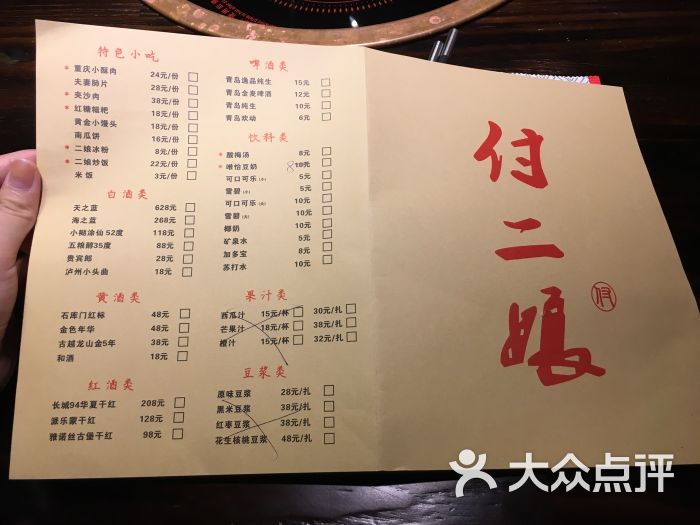 特色小吃
* 重庆小酥肉 24元/份
夫妻肺片 28元/份
* 夹沙肉 38元/份
* 红糖糍粑 18元/份
黄金小馒头 18元/份
南瓜饼 16元/份
* 二娘冰粉 8元/份
* 二娘炒饭 22元/份
米饭 3元/份
白酒类
天之蓝 628元
海之蓝 268元
小糊涂仙 52度 118元
五粮醇35度 88元
贵宾郎 28元
泸州小头曲 18元
黄酒类
石库门红标 48元
金色年华 48元
古越龙山金5年 38元
和酒 18元
红酒类
长城94华夏干红 208元
派乐蒙干红 128元
雅诺丝古堡干红 98元
啤酒类
青岛逸品纯生 15元
青岛全麦啤酒 12元
青岛纯生 10元
青岛欢动 6元
饮料类
* 酸梅汤 8元
* 唯怡豆奶 8 10元
可口可乐(小) 5元
雪碧(小) 5元
可口可乐(大) 10元
雪碧(大) 10元
椰奶 10元
矿泉水 5元
加多宝 8元
苏打水 10元
果汁类
西瓜汁 15元/杯 30元/扎
芒果汁 18元/杯 38元/扎
橙汁 15元/杯 32元/扎
豆浆类
原味豆浆 28元/扎
黑米豆浆 38元/扎
红枣豆浆 38元/扎
花生核桃豆浆 48元/扎
付二娘
大众点评